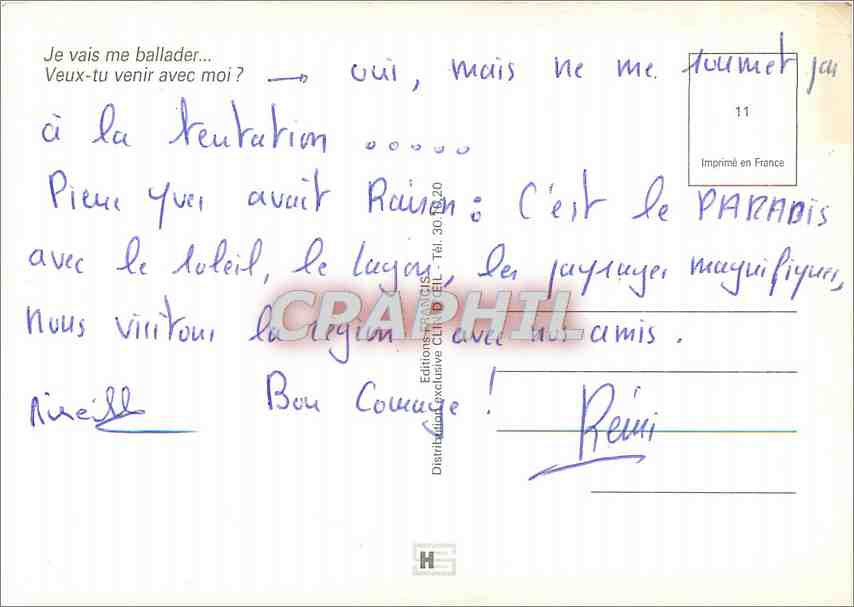 Je vais me ballader...
Veux-tu venir avec moi ? → oui, mais ne me soumet pas
à la tentation .....
Pierre Yves avait Raison : C'est le PARADIS
avec le soleil, le lagon, les paysages magnifiques,
nous visitons la région avec nos amis.
Mireille Bon Courage ! Rémi
11
Imprimé en France
Editions FRANCIS
Distribution exclusive CLIN D'ŒIL - Tél. 30.10.20
CPAPHIL
H